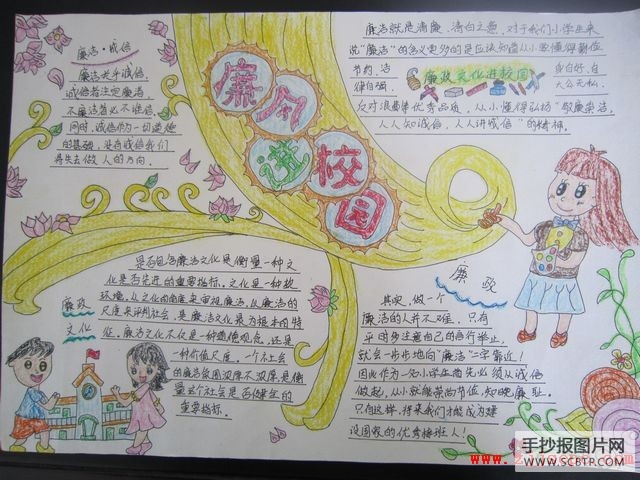 廉洁·诚信
廉洁关乎诚信,
诚信者注定廉洁,
不廉洁者必不诚信,
同时,诚信作为一切道德
的基础,没有诚信我们
将失去做人的方向.
廉内
进校园
廉洁就是清廉、清白之意,对于我们小学生来
说"廉洁"的含义更多的是应该知道从小要懂得勤俭
节约、洁
律自强、
廉政文化进校园
反对浪费等优秀品质,从小懂得弘扬"敬廉崇洁,
人人知诚信,人人讲诚信"的精神.
是否包含廉洁文化是衡量一种文
化是否先进的重要指标。文化是一种软
环境,从文化的角度来审视廉洁,从廉洁的
尺度来评判社会,是廉洁文化最为根本的特
征。廉洁文化不仅是一种道德观念,还是
一种价值尺度。一个社会
的廉洁氛围浓厚不浓厚是衡
量这个社会是否健全的
重要指标。
廉政
文化
廉政
其实,做一个
廉洁的人并不难,只有
平时多注意自己的言行举止,
就会一步步地向"廉洁"二字靠近!
因此作为一名小学生首先必须从诚信
做起,从小就能崇尚节俭,知晓廉耻。
只有这样,将来我们才能成为建
设国家的优秀接班人!
手抄报图片网
WWW.SCBTP.COM